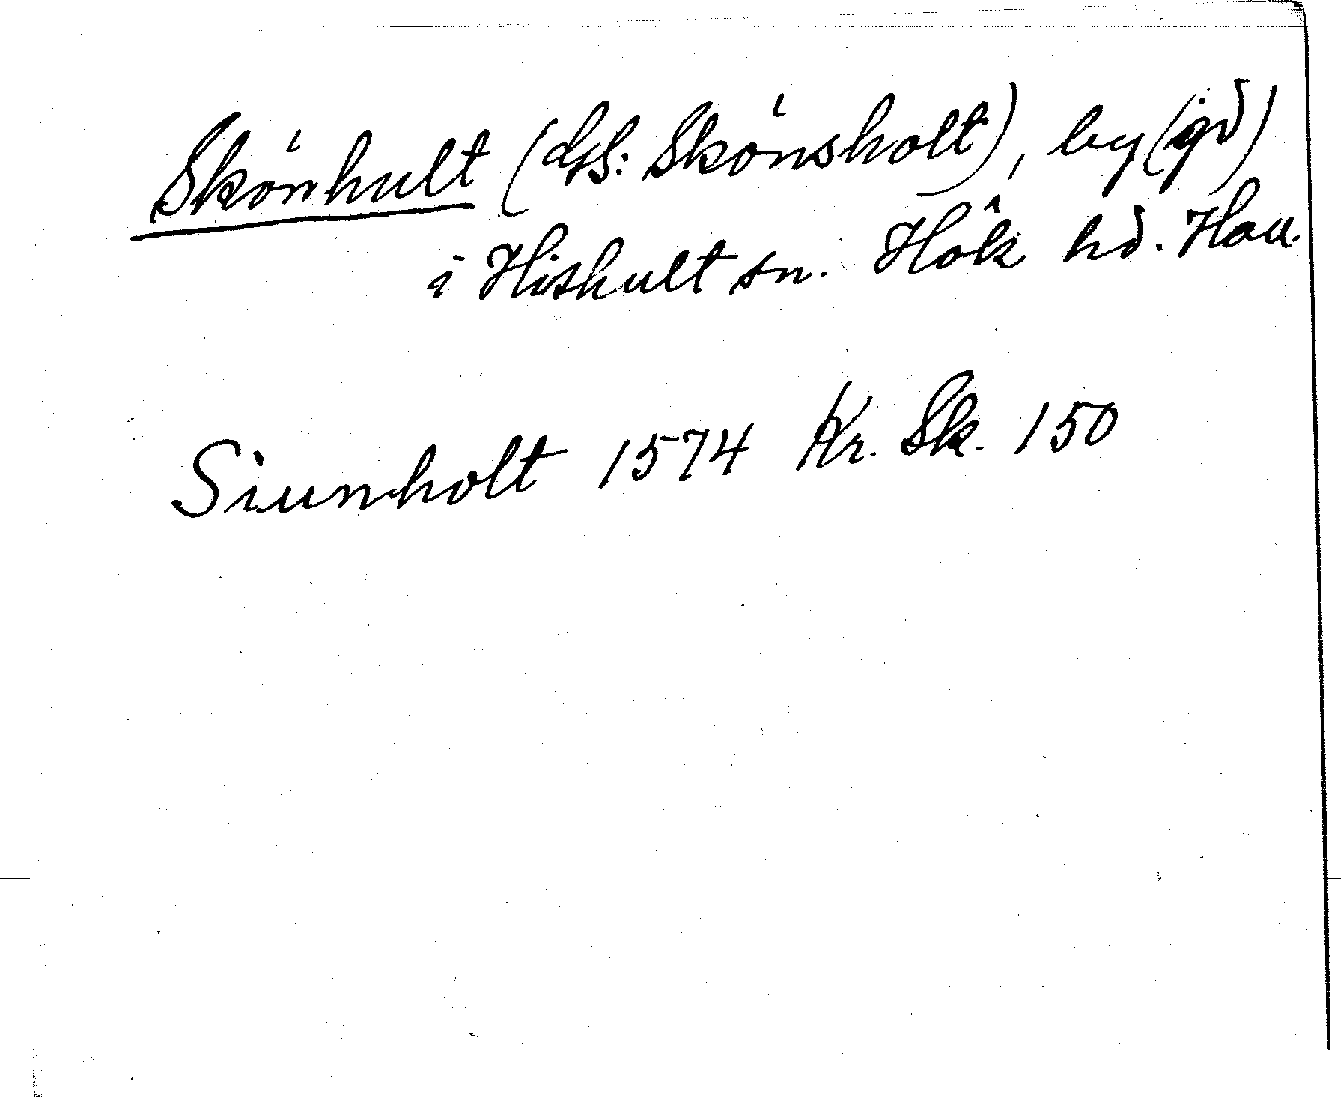 Skönhult (GS: Skönsholt), by (gd)
i Hishult sn. Hök hd. Hall.
Siunholt 1574 Kr. Sk. 150